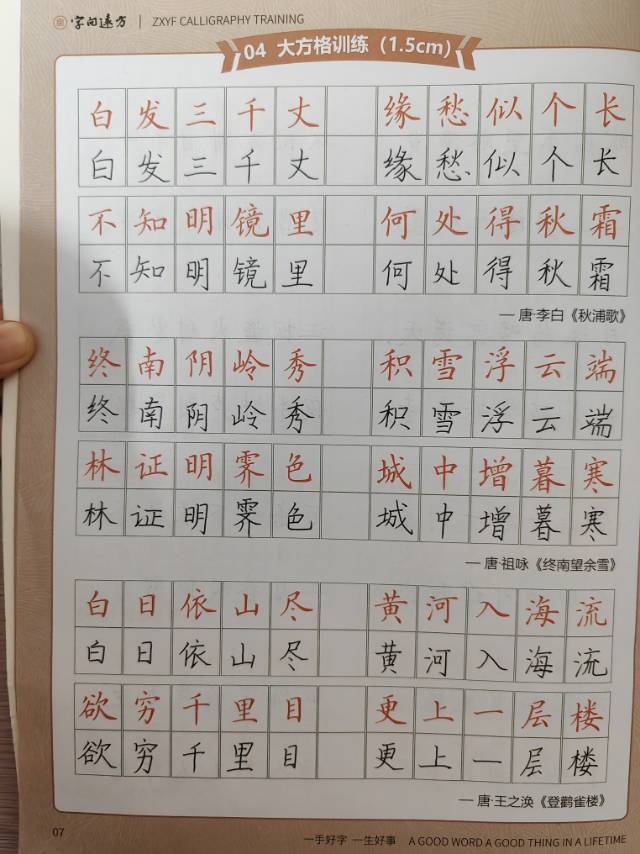 字间远方 | ZXYF CALLIGRAPHY TRAINING
04 大方格训练（1.5cm）
白发三千丈 缘愁似个长
白发三千丈 缘愁似个长
不知明镜里 何处得秋霜
不知明镜里 何处得秋霜
— 唐·李白《秋浦歌》
终南阴岭秀 积雪浮云端
终南阴岭秀 积雪浮云端
林证明霁色 城中增暮寒
林证明霁色 城中增暮寒
— 唐·祖咏《终南望余雪》
白日依山尽 黄河入海流
白日依山尽 黄河入海流
欲穷千里目 更上一层楼
欲穷千里目 更上一层楼
— 唐·王之涣《登鹳雀楼》
07
一手好字 一生好事 A GOOD WORD A GOOD THING IN A LIFETIME